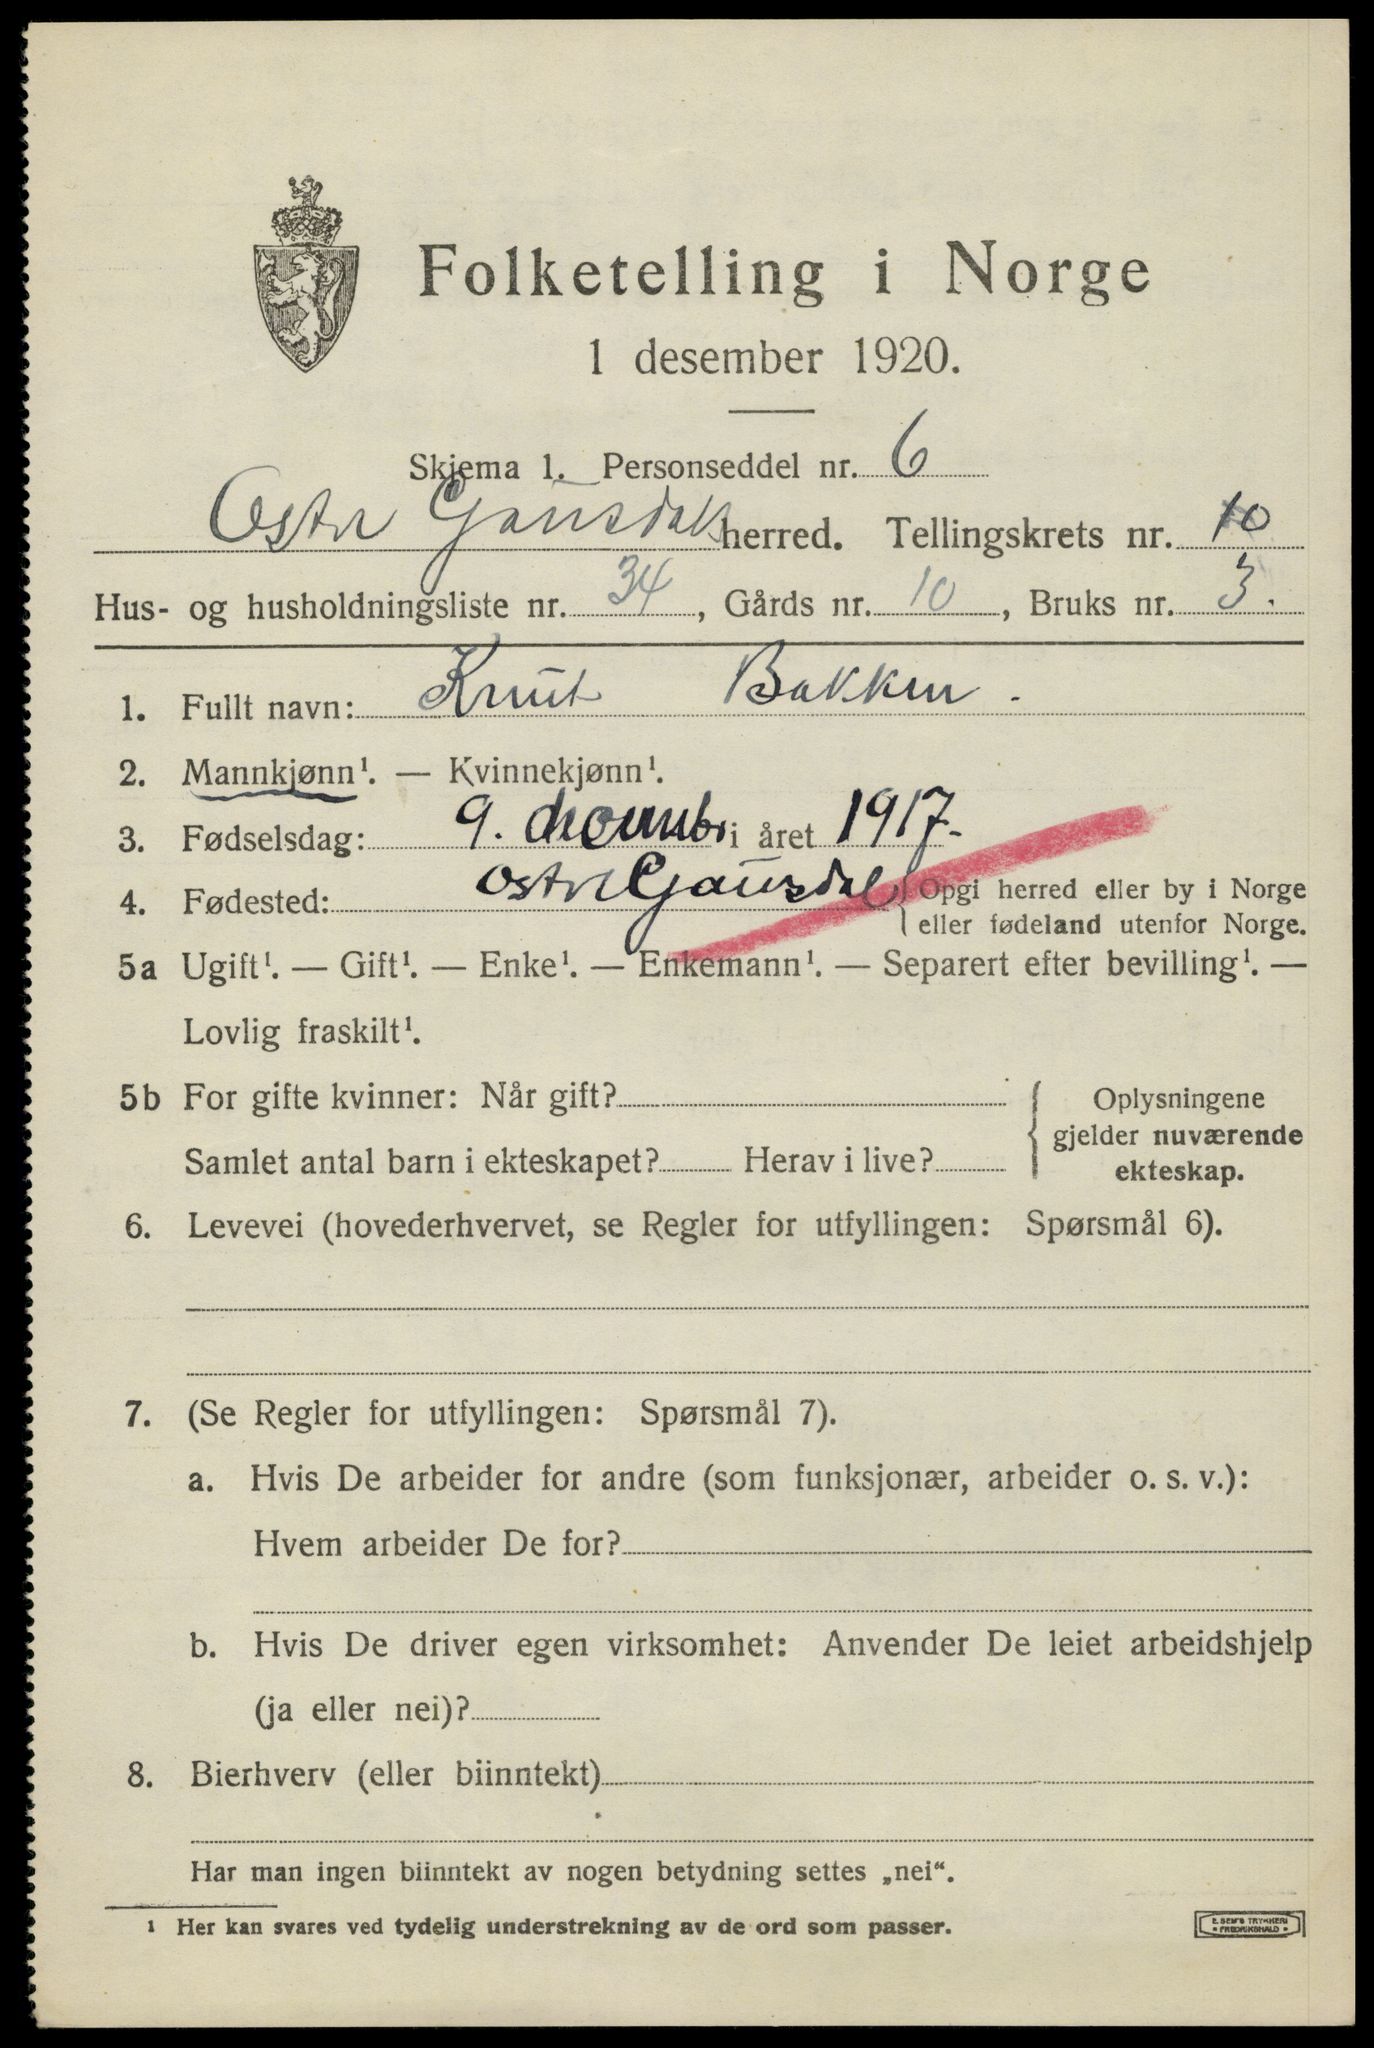 Folketelling i Norge
1 desember 1920.
Skjema 1. Personseddel nr. 6
Østre Gausdals herred. Tellingskrets nr. 10
Hus- og husholdningsliste nr. 34, Gårds nr. 10, Bruks nr. 3.
1. Fullt navn: Knut Bakken.
2. Mannkjønn¹. — Kvinnekjønn¹.
3. Fødselsdag: 9. december i året 1917.
4. Fødested: Østre Gausdal { Opgi herred eller by i Norge
eller fødeland utenfor Norge.
5a Ugift¹. — Gift¹. — Enke¹. — Enkemann¹. — Separert efter bevilling¹. —
Lovlig fraskilt¹.
5b For gifte kvinner: Når gift? { Oplysningene
gjelder nuværende
Samlet antal barn i ekteskapet? Herav i live? ekteskap.
6. Levevei (hovederhvervet, se Regler for utfyllingen: Spørsmål 6).
7. (Se Regler for utfyllingen: Spørsmål 7).
a. Hvis De arbeider for andre (som funksjonær, arbeider o. s. v.):
Hvem arbeider De for?
b. Hvis De driver egen virksomhet: Anvender De leiet arbeidshjelp
(ja eller nei)?
8. Bierhverv (eller biinntekt)
Har man ingen biinntekt av nogen betydning settes „nei“.
¹ Her kan svares ved tydelig understrekning av de ord som passer.
E. SEM'S TRYKKERI
• FREDRIKSHALD •